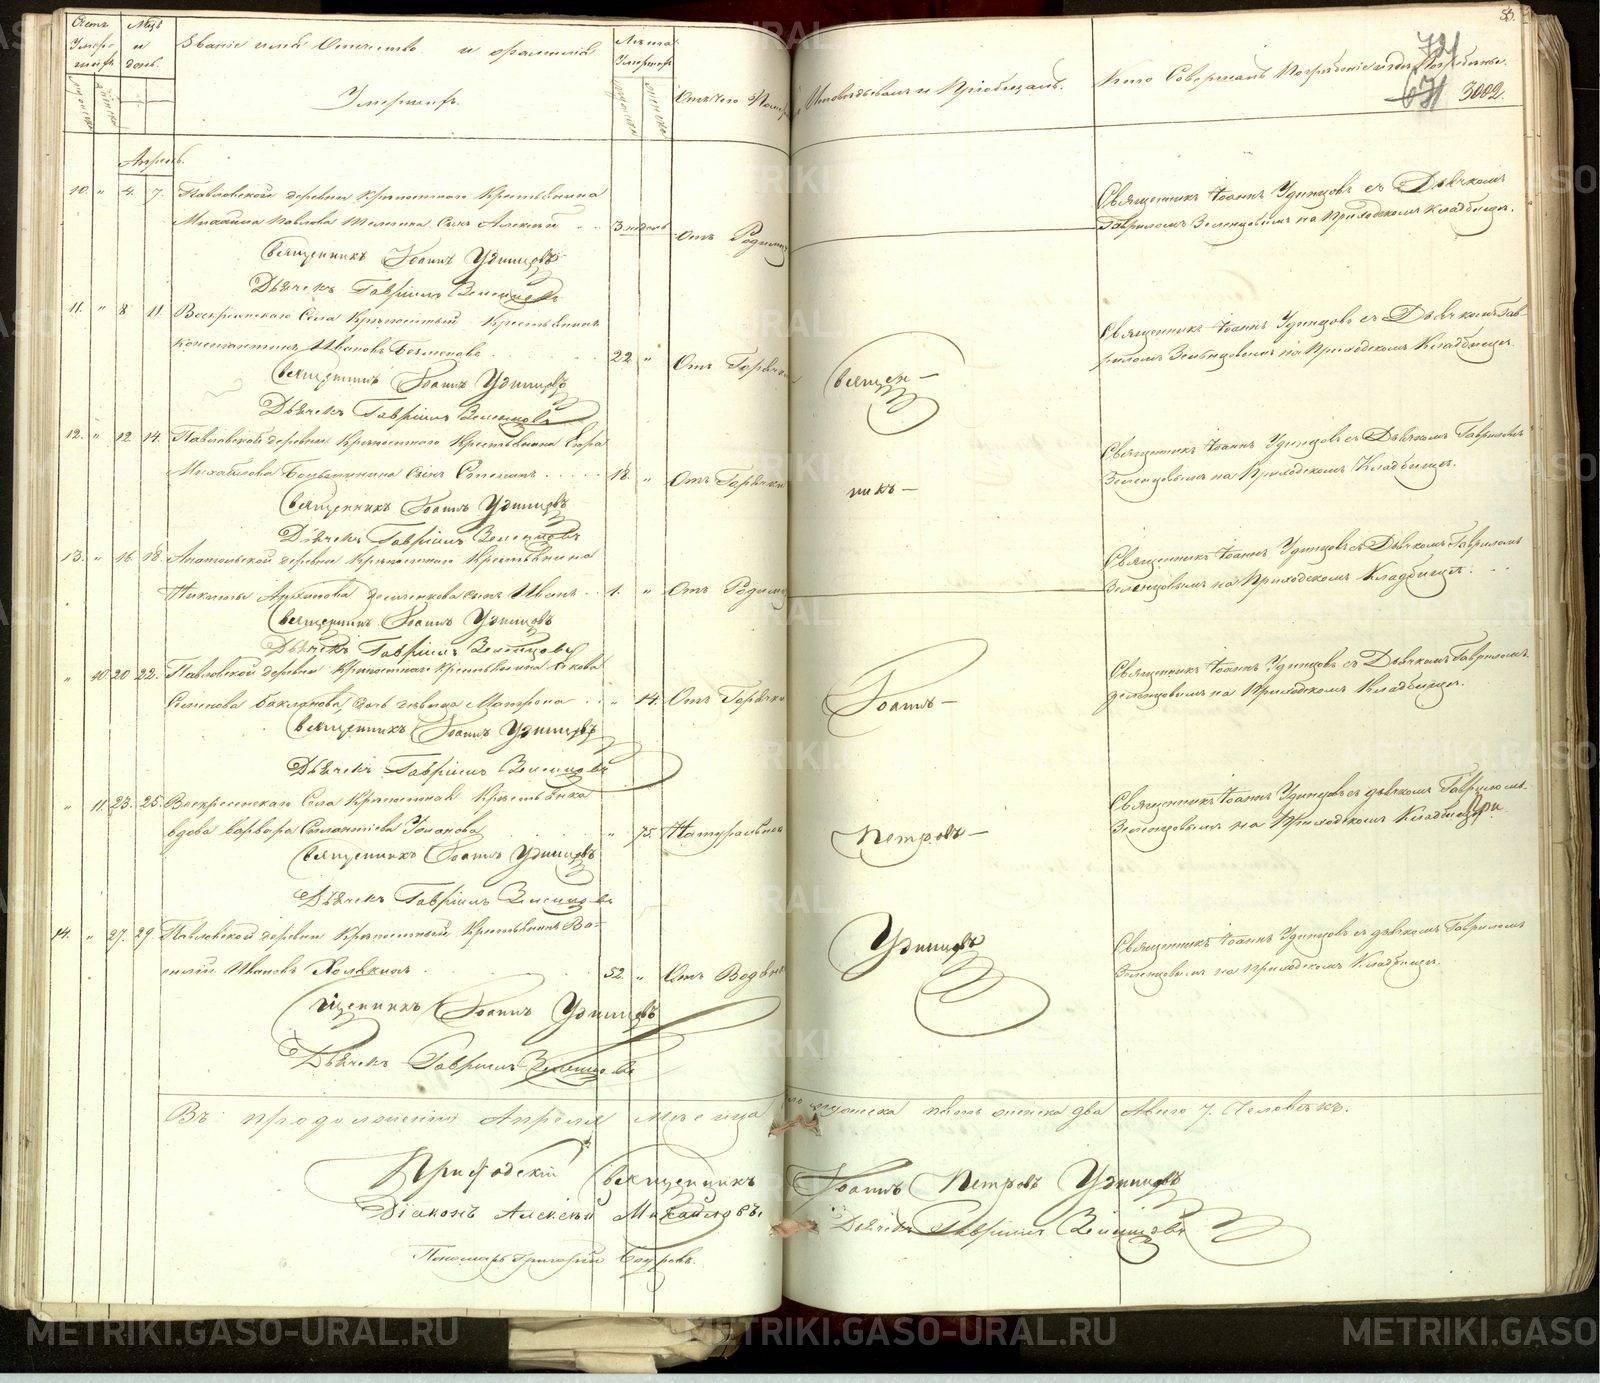 Счетъ Умершихъ
Мѣсяцъ и день
Званіе имя Отчество и фамилія Умершихъ.
Лѣта Умершихъ
Отъ чего Померъ
Кто Исповѣдывалъ и Пріобщалъ.
Кто Совершалъ Погребеніе и гдѣ Погребены.
53.
721
671
3002.
Апрель.
10. „ 4. 7. Павловской деревни Крѣпостнаго Крестьянина
Михайла Павлова сынъ Алексѣй 3 недель Отъ Родимца
Священникъ Іоаннъ Удинцовъ съ Дьячкомъ
Гавриломъ Зеленцовымъ на Приходскомъ Кладбищѣ.
Священникъ Іоаннъ Удинцовъ
Дьячекъ Гавріилъ Зеленцовъ
11. „ 8 11. Воскресенскаго Села Крѣпостный Крестьянинъ
Константинъ Ивановъ 22 „ Отъ Горячки
Священникъ Іоаннъ Удинцовъ съ Дьячкомъ Гав-
риломъ Зеленцовымъ на Приходскомъ Кладбищѣ.
Священникъ Іоаннъ Удинцовъ
Дьячекъ Гавріилъ Зеленцовъ
12. „ 12 14. Павловской деревни Крѣпостнаго Крестьянина
Михайлова сынъ 18. „ Отъ Горячки
Священникъ Іоаннъ Удинцовъ съ Дьячкомъ Гавриломъ
Зеленцовымъ на Приходскомъ Кладбищѣ.
Священникъ Іоаннъ Удинцовъ
Дьячекъ Гавріилъ Зеленцовъ
13. „ 16. 18. деревни Крѣпостнаго Крестьянина
Никиты сынъ Иванъ 1. „ Отъ Родимца
Священникъ Іоаннъ Удинцовъ съ Дьячкомъ Гавриломъ
Зеленцовымъ на Приходскомъ Кладбищѣ.
Священникъ Іоаннъ Удинцовъ
Дьячекъ Гавріилъ Зеленцовъ
„ 10. 20 22. Павловской деревни Крѣпостнаго Крестьянина Якова
Семенова Бакланова дочь девица Матрона „ 14. Отъ Горячки
Священникъ Іоаннъ Удинцовъ съ Дьячкомъ Гавриломъ
Зеленцовымъ на Приходскомъ Кладбищѣ.
Священникъ Іоаннъ Удинцовъ
Дьячекъ Гавріилъ Зеленцовъ
„ 11 23. 25. Воскресенскаго Села Крѣпостная Крестьянка
вдова Варвара „ 75. Натурально
Священникъ Іоаннъ Удинцовъ съ дьячкомъ Гавриломъ
Зеленцовымъ на Приходскомъ Кладбищѣ
При-
Священникъ Іоаннъ Удинцовъ
Дьячекъ Гавріилъ Зеленцовъ
14. „ 27. 29. Павловской деревни Крѣпостный Крестьянинъ Ва-
силій Ивановъ 52. „ Отъ Водяной
Священникъ Іоаннъ Удинцовъ съ дьячкомъ Гавриломъ
Зеленцовымъ на Приходскомъ Кладбищѣ.
Священникъ Іоаннъ Удинцовъ
Дьячекъ Гавріилъ Зеленцовъ
Священ-
никъ-
Іоаннъ-
Петровъ-
Удинцовъ
Въ продолженіи Апреля месяца мужеска пять женска два Авсего 7. Человѣкъ.
Приходскій Священникъ Іоаннъ Петровъ Удинцовъ
Діаконъ Алексѣй Михайловъ
Дьячекъ Гавріилъ Зеленцовъ
Пономарь Григорій
METRIKI.GASO-URAL.RU